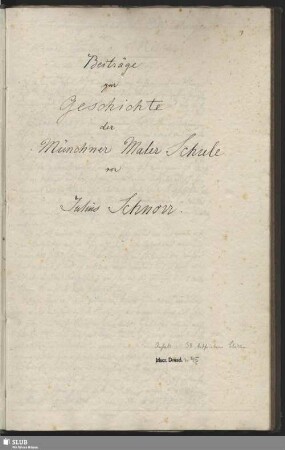 Beiträge
zur
Geschichte
der
Münchner Maler Schule
von
Julius Schnorr.
Mscr. Dresd.
SLUB
Wir führen Wissen.